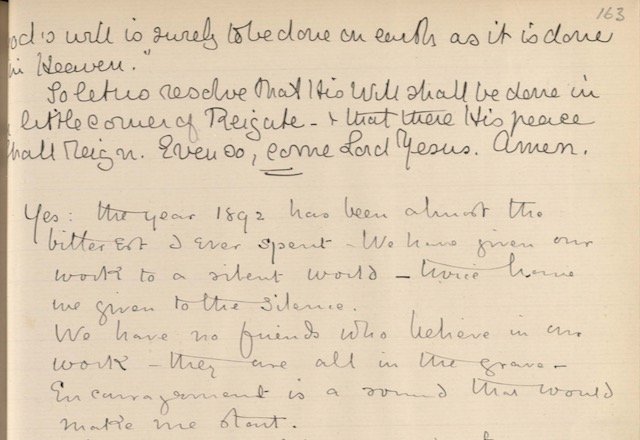 163
od's will is surely to be done on earth as it is done
in Heaven."
So let us resolve that His Will shall be done in
little corner of Reigate - & that there His peace
shall Reign. Even so, come Lord Jesus. Amen.
Yes: the year 1892 has been almost the
bitterest I ever spent - We have given our
work to a silent world - twice have
we given to the silence.
We have no friends who believe in our
work - they are all in the grave -
Encouragement is a sound that would
make me start.